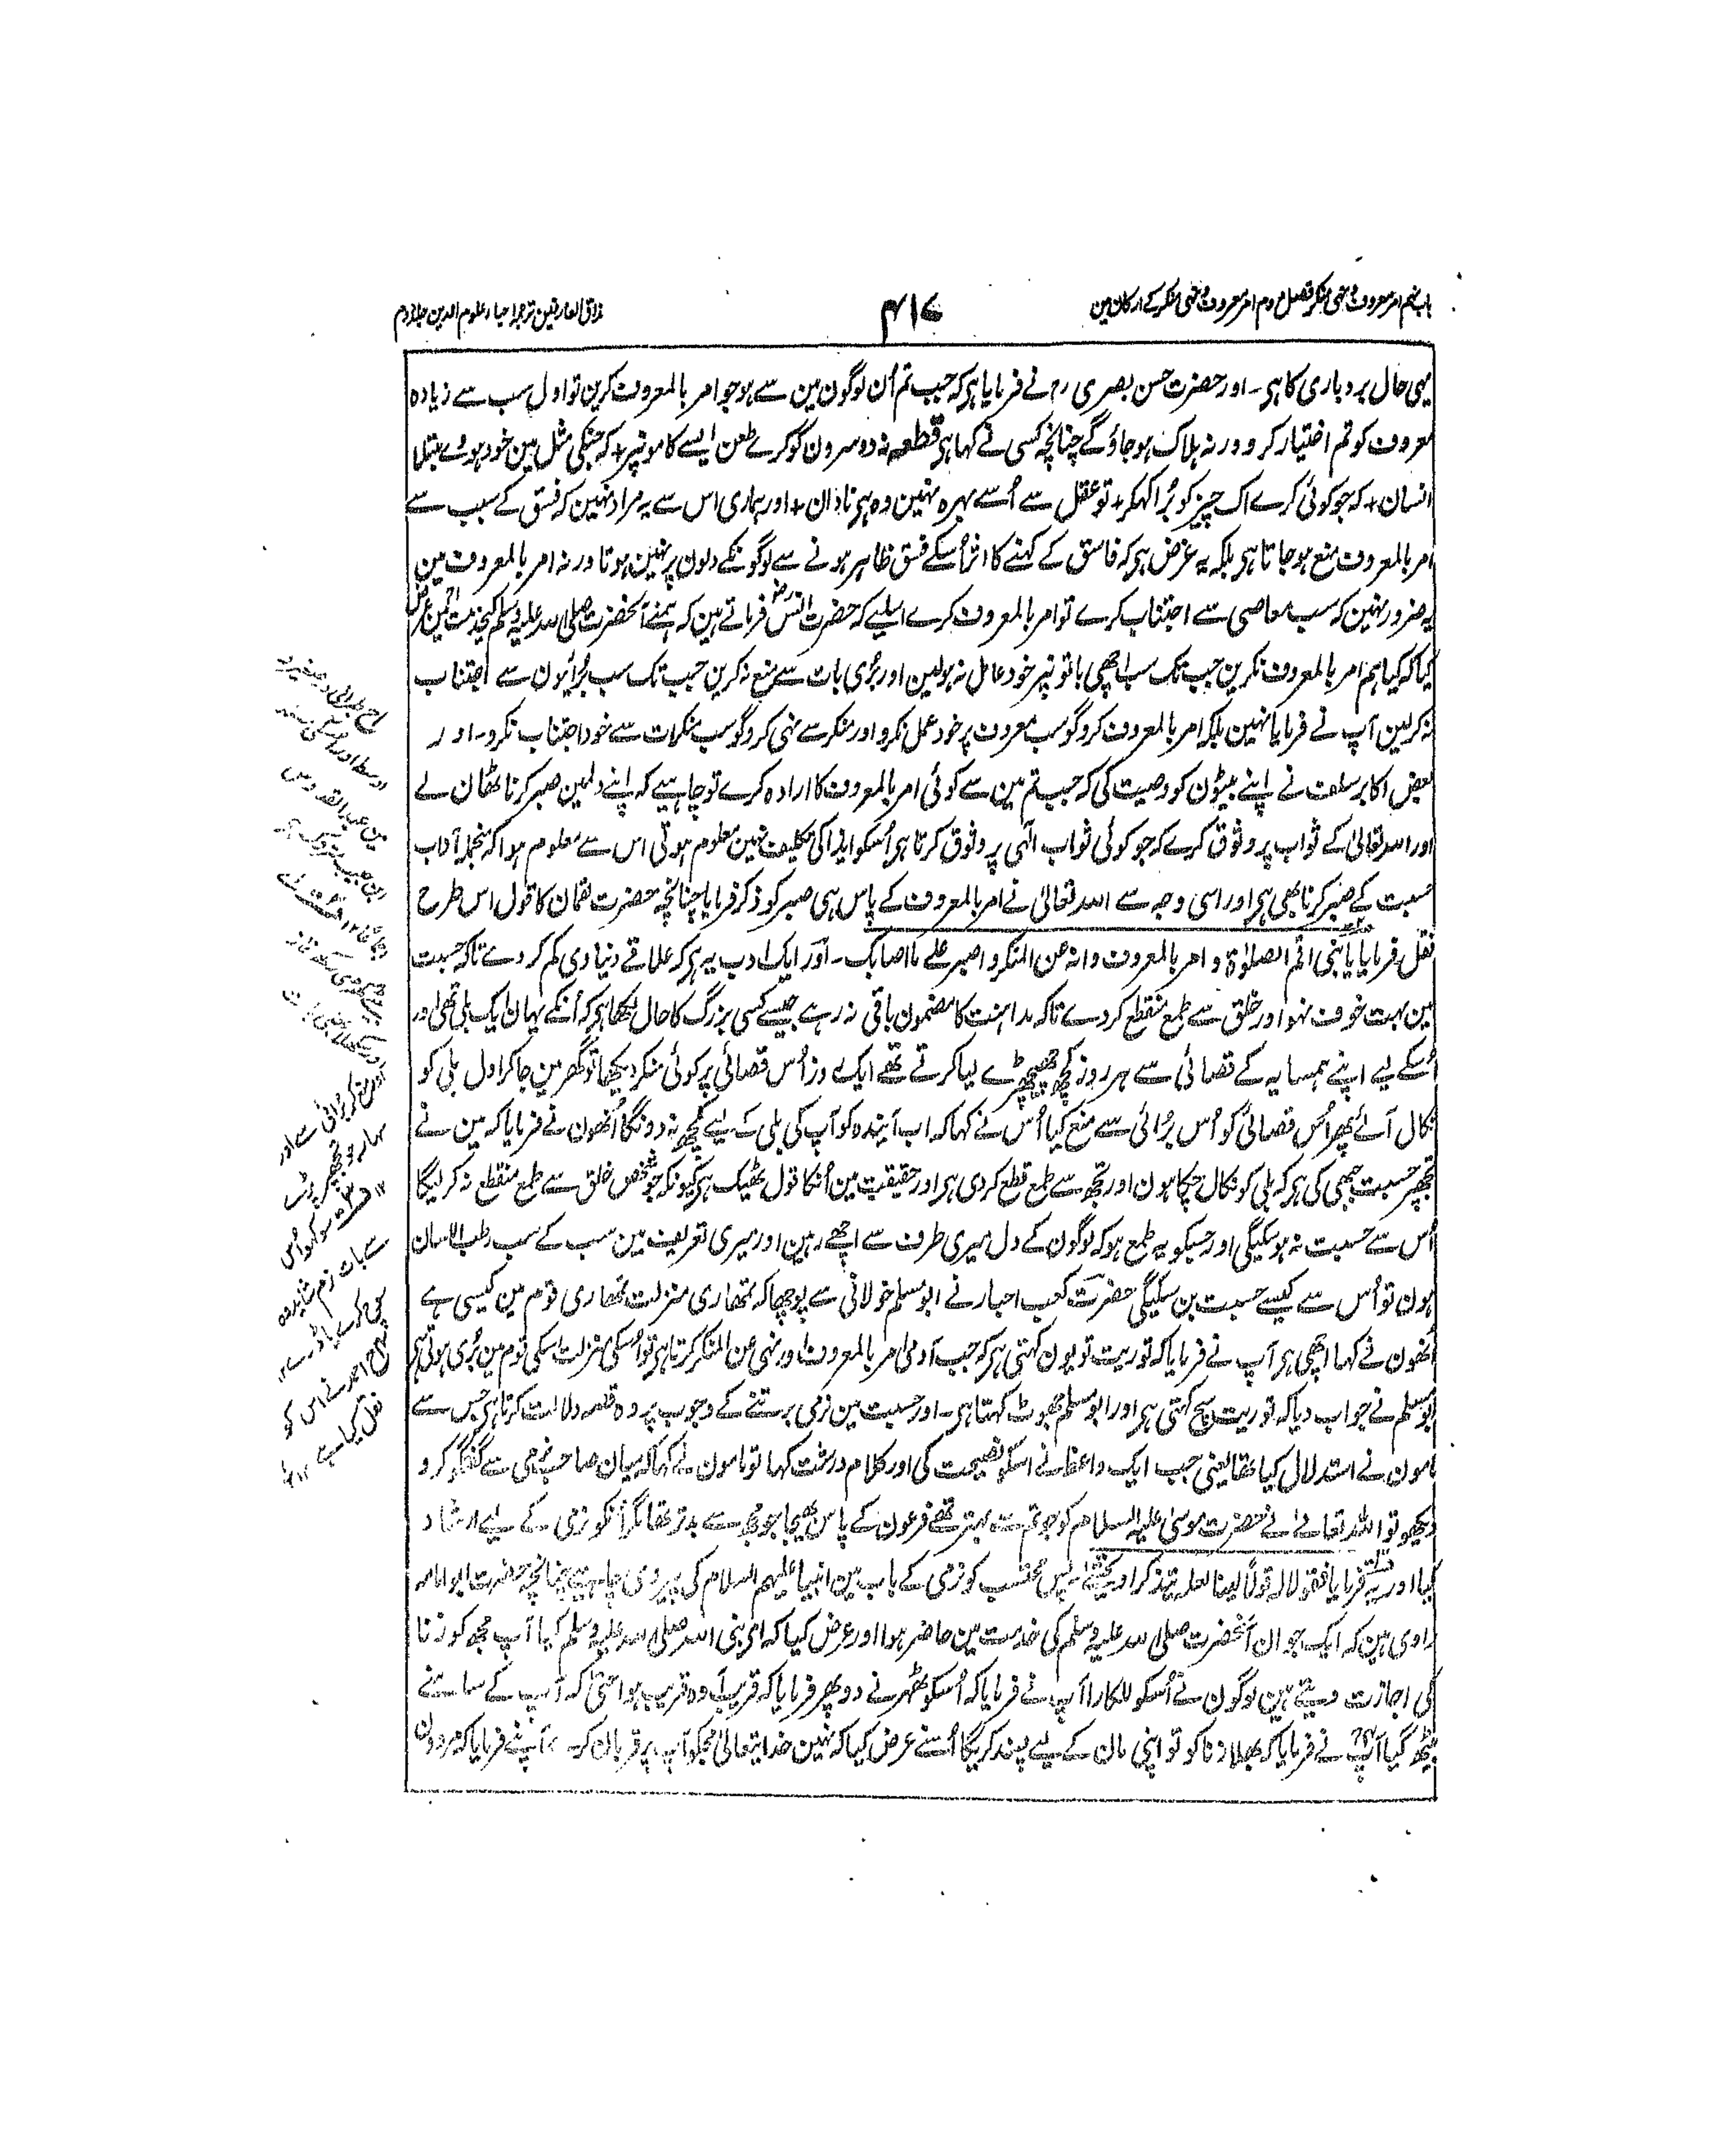 باب نہم امر معروف و نہی منکر فصل دوم امر معروف و نہی منکر کے ارکان مین
۴۱۷
مذاق العارفین ترجمہ احیاء علوم الدین جلد دوم
یہی حال بردباری کا ہی۔ اور حضرت حسن بصری رح نے فرمایا ہی کہ جب تم اُن لوگون مین سے ہو جو امر بالمعروف کرین تو اول سب سے زیادہ
معروف کو تم اختیار کرو ورنہ ہلاک ہو جاؤ گے چنانچہ کسی نے کہا ہی قطعہ نہ دوسرون کو کرے طعن ایسے کامونپر + کہ جنکی مثل مین خود ہوئے مبتلا
انسان + کہ جو کوئی کرے اک چیز کو بُرا کہکر + تو عقل سے اُسے بہرہ نہین وہ ہی نادان + اور ہماری اس سے یہ مراد نہین کہ فسق کے سبب سے
امر بالمعروف منع ہو جاتا ہی بلکہ یہ غرض ہی کہ فاسق کے کہنے کا اثر اُسکے فسق ظاہر ہونے سے لوگونکے دلون پر نہین ہوتا ورنہ امر بالمعروف مین
یہ ضرور نہین کہ سب معاصی سے اجتناب کرے تو امر بالمعروف کرے اسلیے کہ حضرت انس رض فرماتے ہین کہ ہمنے آنحضرت صلی اللہ علیہ وسلم کیخدمت مین عرض
کیا کہ کیا ہم امر بالمعروف نکرین جب تک سب اچھی باتونپر خود عامل نہ ہولین اور بُری بات سے منع نہ کرین جب تک سب بُرائیون سے اجتناب
نہ کرلین آپ نے فرمایا نہین بلکہ امر بالمعروف کرو گو سب معروف پر خود عمل نکرو اور منکر سے نہی کرو گو سب منکرات سے خود اجتناب نکرو۔ اور
بعض اکابر سلف نے اپنے بیٹون کو وصیت کی کہ جب تم مین سے کوئی امر بالمعروف کا ارادہ کرے تو چاہیے کہ اپنے دلمین صبر کرنا ٹھان لے
اور اللہ تعالیٰ کے ثواب پر وثوق کرے کہ جو کوئی ثواب الٰہی پر وثوق کرتا ہی اُسکو ایذا کی تکلیف نہین معلوم ہوتی اس سے معلوم ہوا کہ منجملہ آداب
حسبت کے صبر کرنا بھی ہی اور اسی وجہ سے اللہ تعالیٰ نے امر بالمعروف کے پاس ہی صبر کو ذکر فرمایا چنانچہ حضرت لقمان کا قول اس طرح
نقل فرمایا یا بُنیّ اقم الصلوٰۃ و امر بالمعروف وانہ عن المنکر واصبر علے ما اصابک۔ اور ایک ادب یہ ہی کہ علاقے دنیاوی کم کر دے تاکہ حسبت
مین بہت خوف نہو اور خلق سے طمع منقطع کر دے تاکہ مداہنت کا مضمون باقی نہ رہے جیسے کسی بزرگ کا حال لکھا ہی کہ اُنکے یہان ایک بلی تھی اور
اُسکے لیے اپنے ہمسایہ کے قصائی سے ہر روز کچھ چھیچھڑے لیا کرتے تھے ایک روز اُس قصائی پر کوئی منکر دیکھا تو گھر مین جا کر اول بلی کو
نکال آئے پھر اُس قصائی کو اُس بُرائی سے منع کیا اُس نے کہا کہ اب آیندہ کو آپ کی بلی کے لیے کچھ نہ دونگا اُنھون نے فرمایا کہ مین نے
تجھپر حسبت جبھی کی ہی کہ بلی کو نکال چکا ہون اور تجھ سے طمع قطع کر دی ہی اور حقیقت مین اُنکا قول ٹھیک ہی کیونکہ جو شخص خلق سے طمع منقطع نہ کرلیگا
اُس سے حسبت نہ ہوسکیگی اور جسکو یہ طمع ہو کہ لوگون کے دل میری طرف سے اچھے رہین اور میری تعریف مین سب کے سب رطب اللسان
ہون تو اُس سے کیسے حسبت بن سکیگی حضرت کعب احبار نے ابو مسلم خولانی سے پوچھا کہ تمھاری منزلت تمھاری قوم مین کیسی ہے
اُنھون نے کہا اچھی ہی آپ نے فرمایا کہ توریت تو یون کہتی ہی کہ جب آدمی امر بالمعروف اور نہی عن المنکر کرتا ہی تو اُسکی منزلت اسکی قوم مین بُری ہوتی ہی
ابو مسلم نے جواب دیا کہ توریت سچ کہتی ہی اور ابو مسلم جھوٹ کہتا ہی۔ اور حسبت مین نرمی برتنے کے وجوب پر وہ قصہ دلالت کرتا ہی جس سے
مامون نے استدلال کیا تھا یعنی جب ایک واعظ نے اسکو نصیحت کی اور کلام درشت کہا تو مامون نے کہا کہ میان صاحب نرمی سے گفتگو کرو
دیکھو تو اللہ تعالے نے حضرت موسیٰ علیہ السلام کو جو تم سے بہتر تھے فرعون کے پاس بھیجا جو مجھ سے بدتر تھا مگر اُنکو نرمی کے لیے ارشاد
کیا اور یہ فرمایا فقولا لہ قولًا لینا لعلہ یتذکر او یخشیٰ پس محتسب کو نرمی کے باب مین انبیا علیہم السلام کی پیروی چاہیے چنانچہ حضرت ابو امامہ
راوی ہین کہ ایک جوان آنحضرت صلی اللہ علیہ وسلم کی خدمت مین حاضر ہوا اور عرض کیا کہ ای نبی اللہ صلی اللہ علیہ وسلم کیا آپ مجھ کو زنا
کی اجازت دیتے ہین لوگون نے اُسکو للکارا آپ نے فرمایا کہ اُسکو ٹھہرنے دو پھر فرمایا کہ قریب آ وہ قریب ہوا حتیٰ کہ آپ کے سامنے
بیٹھ گیا آپ نے فرمایا کہ بھلا زنا کو تو اپنی مان کے لیے پسند کریگا اُسنے عرض کیا کہ نہین خدایتعالیٰ مجکو آپ پر قربان کرے آپنے فرمایا کہ
اور منع کر بُرائی سے اور
سہار جو تجھپر پڑے
۱۲ سو کہو اُس
سے بات نرم شاید وہ
سوچ کرے یا ڈرے ۱۲
احمد نے اس کو
نقل کیا ہے ۱۲